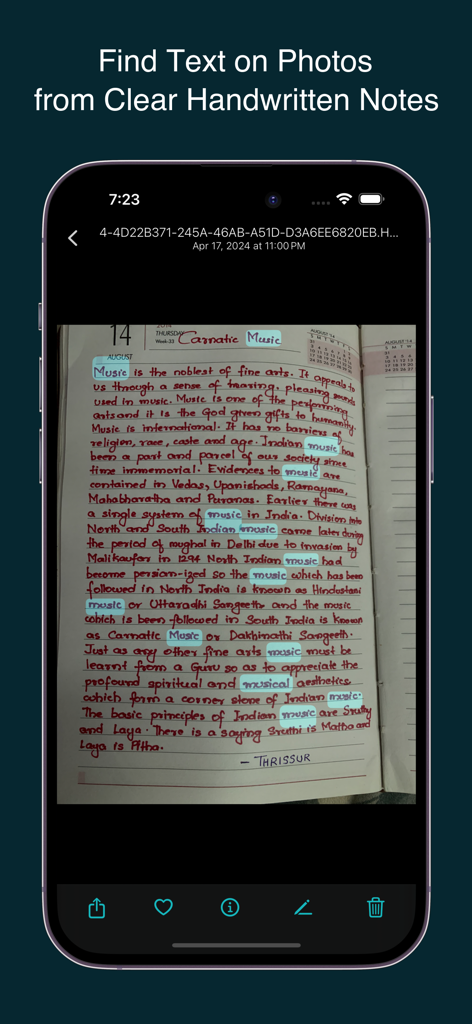 Find Text on Photos
from Clear Handwritten Notes
7:23
4-4D22B371-245A-46AB-A51D-D3A6EE6820EB.H...
Apr 17, 2024 at 11:00 PM
14
THURSDAY
Week-33
AUGUST
Carnatic Music
Music is the noblest of fine arts. It appeals to
us through a sense of hearing. pleasing sounds
used in music. Music is one of the performing
arts and it is the God given gifts to humanity.
Music is international. It has no barriers of
religion, race, caste and age. Indian music has
been a part and parcel of our society since
time immemorial. Evidences to music are
contained in Vedas, Upanishads, Ramayana,
Mahabharatha and Puranas. Earlier there was
a single system of music in India. Division into
North and South Indian music came later during
the period of mughal in Delhi due to invasion by
Malikaufar in 1294 North Indian music had
become persian-ized so the music which has been
followed in North India is known as Hindustani
music or Uttaradhi Sangeeth and the music
which is been followed in South India is known
as Carnatic Music or Dakhinathi Sangeeth.
Just as any other fine arts music must be
learnt from a Guru so as to appreciate the
profound spiritual and musical aesthetics
which form a corner stone of Indian music.
The basic principles of Indian music are Sruthy
and Laya. There is a saying Sruthi is Matha and
Laya is Pitha.
- THRISSUR